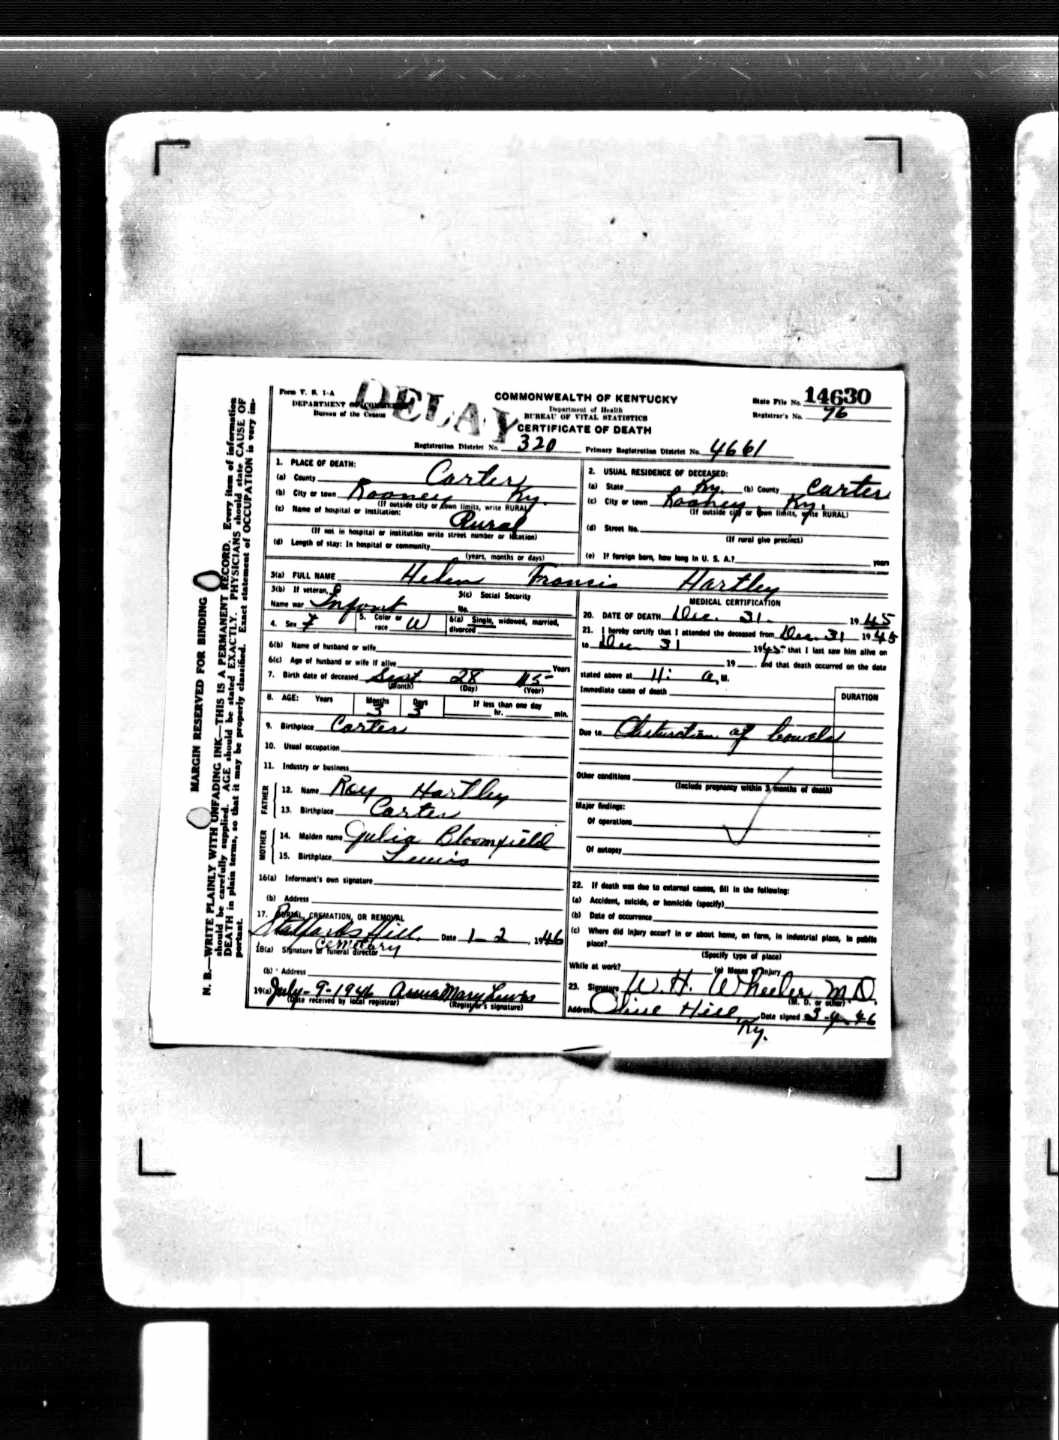 Form V. S. 1-A
DEPARTMENT OF COMMERCE
Bureau of the Census
DELAY
COMMONWEALTH OF KENTUCKY
Department of Health
BUREAU OF VITAL STATISTICS
CERTIFICATE OF DEATH
State File No. 14630
Registrar's No. 76
Registration District No. 320 Primary Registration District No. 4661
1. PLACE OF DEATH:
(a) County Carter
(b) City or town Rooney Ky.
(If outside city or town limits, write RURAL)
(c) Name of hospital or institution:
Rural
(If not in hospital or institution write street number or location)
(d) Length of stay: In hospital or community
(years, months or days)
2. USUAL RESIDENCE OF DECEASED:
(a) State Ky. (b) County Carter
(c) City or town Rooney Ky.
(If outside city or town limits, write RURAL)
(d) Street No.
(If rural give precinct)
(e) If foreign born, how long in U. S. A.? years
3(a) FULL NAME Helen Francis Hartley
3(b) If veteran,
Name war Infant
3(c) Social Security
No.
4. Sex F 5. Color or race W 6(a) Single, widowed, married, divorced
6(b) Name of husband or wife
6(c) Age of husband or wife if alive Years
7. Birth date of deceased Sept 28 45
(Month) (Day) (Year)
8. AGE: Years Months 3 Days 3 If less than one day
hr. min.
9. Birthplace Carter
10. Usual occupation
11. Industry or business
FATHER
12. Name Roy Hartley
13. Birthplace Carter
MOTHER
14. Maiden name Julia Bloomfield
15. Birthplace Lewis
16(a) Informant's own signature
(b) Address
17. BURIAL, CREMATION, OR REMOVAL
Stallards Hill Date 1-2, 1946
cemetary
18(a) Signature of funeral director
(b) Address
19(a) July-9-1946 Anna Mary Lewis
(Date received by local registrar) (Registrar's signature)
MEDICAL CERTIFICATION
20. DATE OF DEATH Dec. 31. 1945
21. I hereby certify that I attended the deceased from Dec. 31 1945
to Dec 31 1945 that I last saw him alive on
19 and that death occurred on the date
stated above at 11: a. M.
Immediate cause of death
DURATION
Due to Obstruction of bowels
Other conditions
(Include pregnancy within 3 months of death)
Major findings:
Of operations
Of autopsy
22. If death was due to external causes, fill in the following:
(a) Accident, suicide, or homicide (specify)
(b) Date of occurrence
(c) Where did injury occur? In or about home, on farm, in industrial place, in public
place?
(Specify type of place)
While at work? (e) Means of Injury
23. Signature W. H. Wheeler M.D.
(M. D. or other)
Address Olive Hill Ky. Date signed 3-4-46
MARGIN RESERVED FOR BINDING
N. B.—WRITE PLAINLY WITH UNFADING INK—THIS IS A PERMANENT RECORD. Every item of information
should be carefully supplied. AGE should be stated EXACTLY. PHYSICIANS should state CAUSE OF
DEATH in plain terms, so that it may be properly classified. Exact statement of OCCUPATION is very im-
portant.